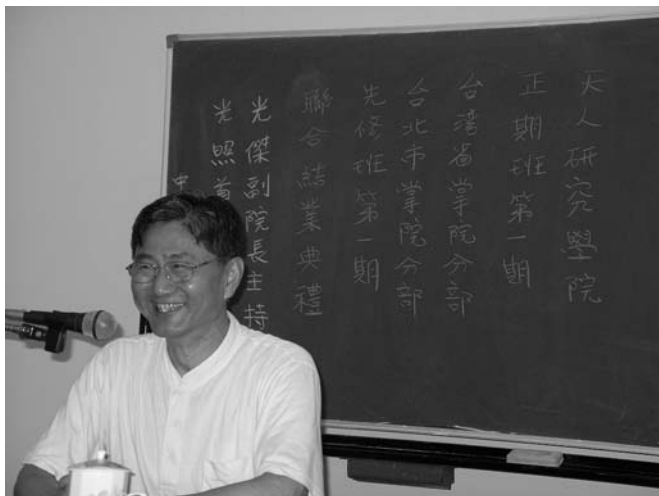 天人研究學院
正期班第一期
台湾省掌院分部
台北市掌院分部
先修班第一期
聯合結業典禮
光傑副院長主持
光照首
中